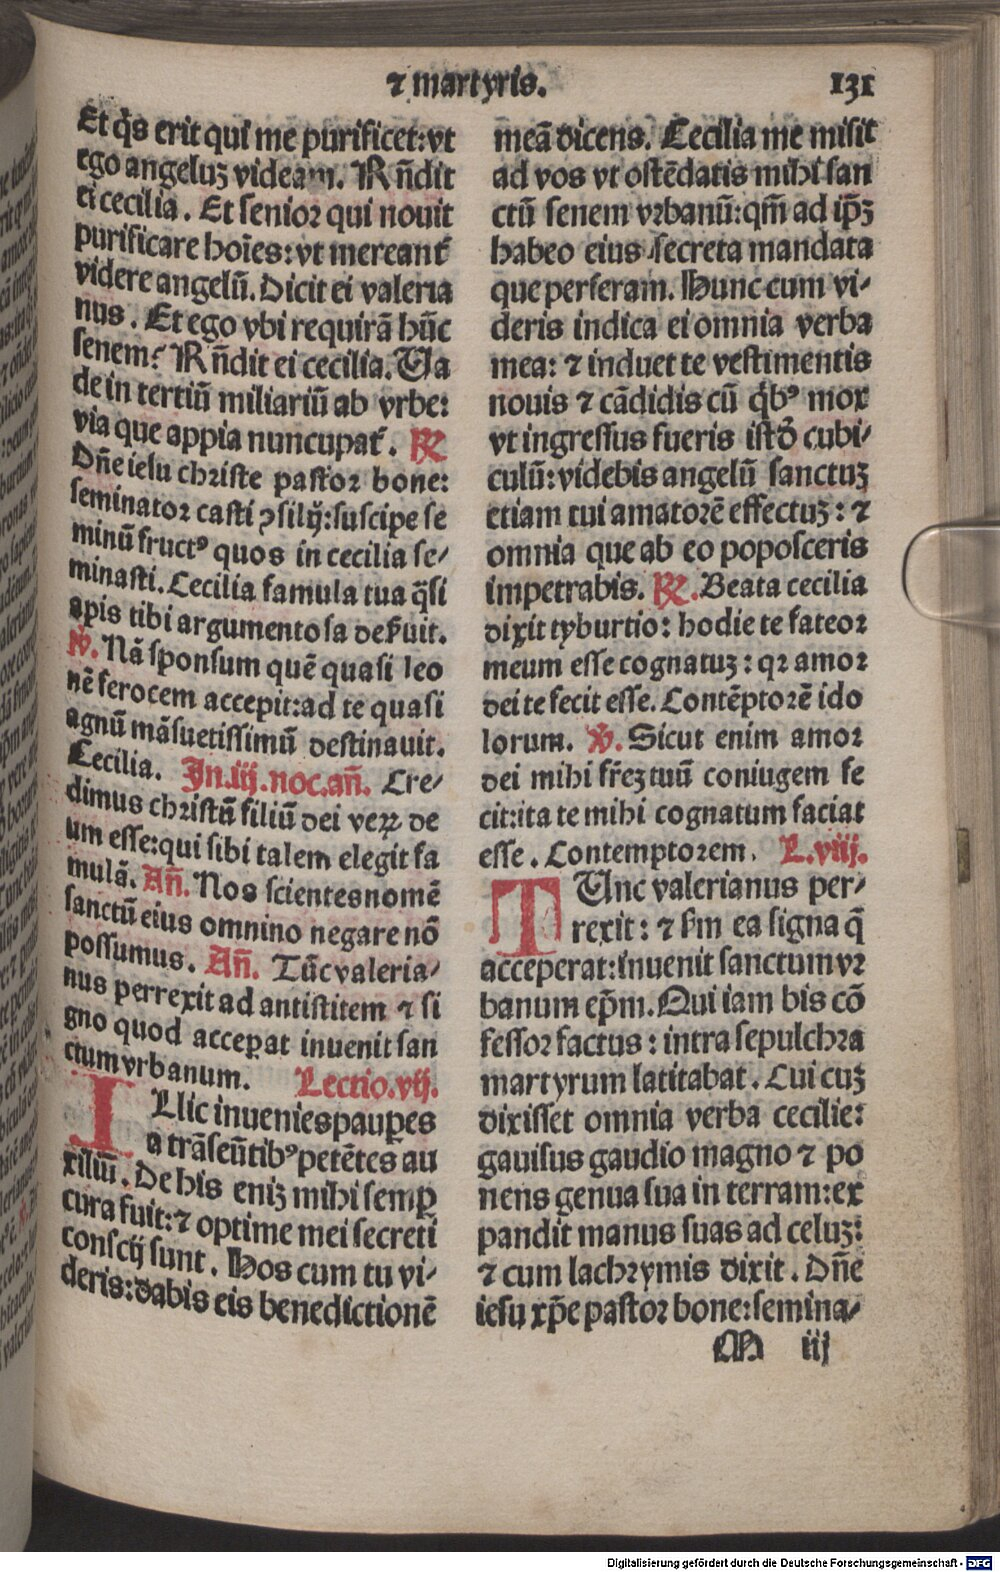 ⁊ martyris. 131
Et q̃s erit qui me purificet: vt
ego angeluꝫ videam. Rñdit
ei cecilia. Et senior qui nouit
purificare hoĩes: vt mereant̃
videre angelũ. Dicit ei valeria
nus. Et ego vbi requirã hũc
senem? Rñdit ei cecilia. Va
de in tertiũ miliariũ ab vrbe:
via que appia nuncupat̃. ℟
Dñe iesu christe pastor bone:
seminator casti ꝯsilij: suscipe se
minũ fructꝰ quos in cecilia se/
minasti. Cecilia famula tua q̃si
apis tibi argumentosa deẜuit.
℣. Nã sponsum quẽ quasi leo
nẽ ferocem accepit: ad te quasi
agnũ mãsuetissimũ destinauit.
Cecilia. In .iij. noc. añ. Cre/
dimus christũ filiũ dei veꝝ de
um esse: qui sibi talem elegit fa
mulã. Añ. Nos scientes nomẽ
sanctũ eius omnino negare nõ
possumus. Añ. Tũc valeria/
nus perrexit ad antistitem ⁊ si
gno quod acceꝑat inuenit san
ctum vrbanum. Lectio .vij.
ILlic inuenies pauꝑes
a trãseũtibꝰ petẽtes au
xiliũ. De his eniꝫ mihi semꝑ
cura fuit: ⁊ optime mei secreti
conscij sunt. Hos cum tu vi/
deris: dabis eis benedictionẽ
meã dicens. Cecilia me misit
ad vos vt ostẽdatis mihi san
ctũ senem vrbanũ: qm̃ ad ip̃ꝫ
habeo eius secreta mandata
que perferam. Hunc cum vi/
deris indica ei omnia verba
mea: ⁊ induet te vestimentis
nouis ⁊ cãdidis cũ q̃bꝰ mox
vt ingressus fueris istõ cubi/
culũ: videbis angelũ sanctuꝫ
etiam tui amatorẽ effectuꝫ: ⁊
omnia que ab eo poposceris
impetrabis. ℟. Beata cecilia
dixit tyburtio: hodie te fateor
meum esse cognatuꝫ: qꝛ amor
dei te fecit esse. Contẽptorẽ ido
lorum. ℣. Sicut enim amor
dei mihi fr̃eꝫ tuũ coniugem fe
cit: ita te mihi cognatum faciat
esse. Contemptorem. L. viij.
TUnc valerianus per/
rexit: ⁊ ẜm ea signa q̃
acceperat: inuenit sanctum vr
banum ep̃m. Qui iam bis cõ
fessor factus: intra sepulchra
martyrum latitabat. Cui cuꝫ
dixisset omnia verba cecilie:
gauisus gaudio magno ⁊ po
nens genua sua in terram: ex
pandit manus suas ad celuꝫ:
⁊ cum lachrymis dixit. Dñe
iesu xp̃e pastor bone: semina/
M iij
Digitalisierung gefördert durch die Deutsche Forschungsgemeinschaft - DFG